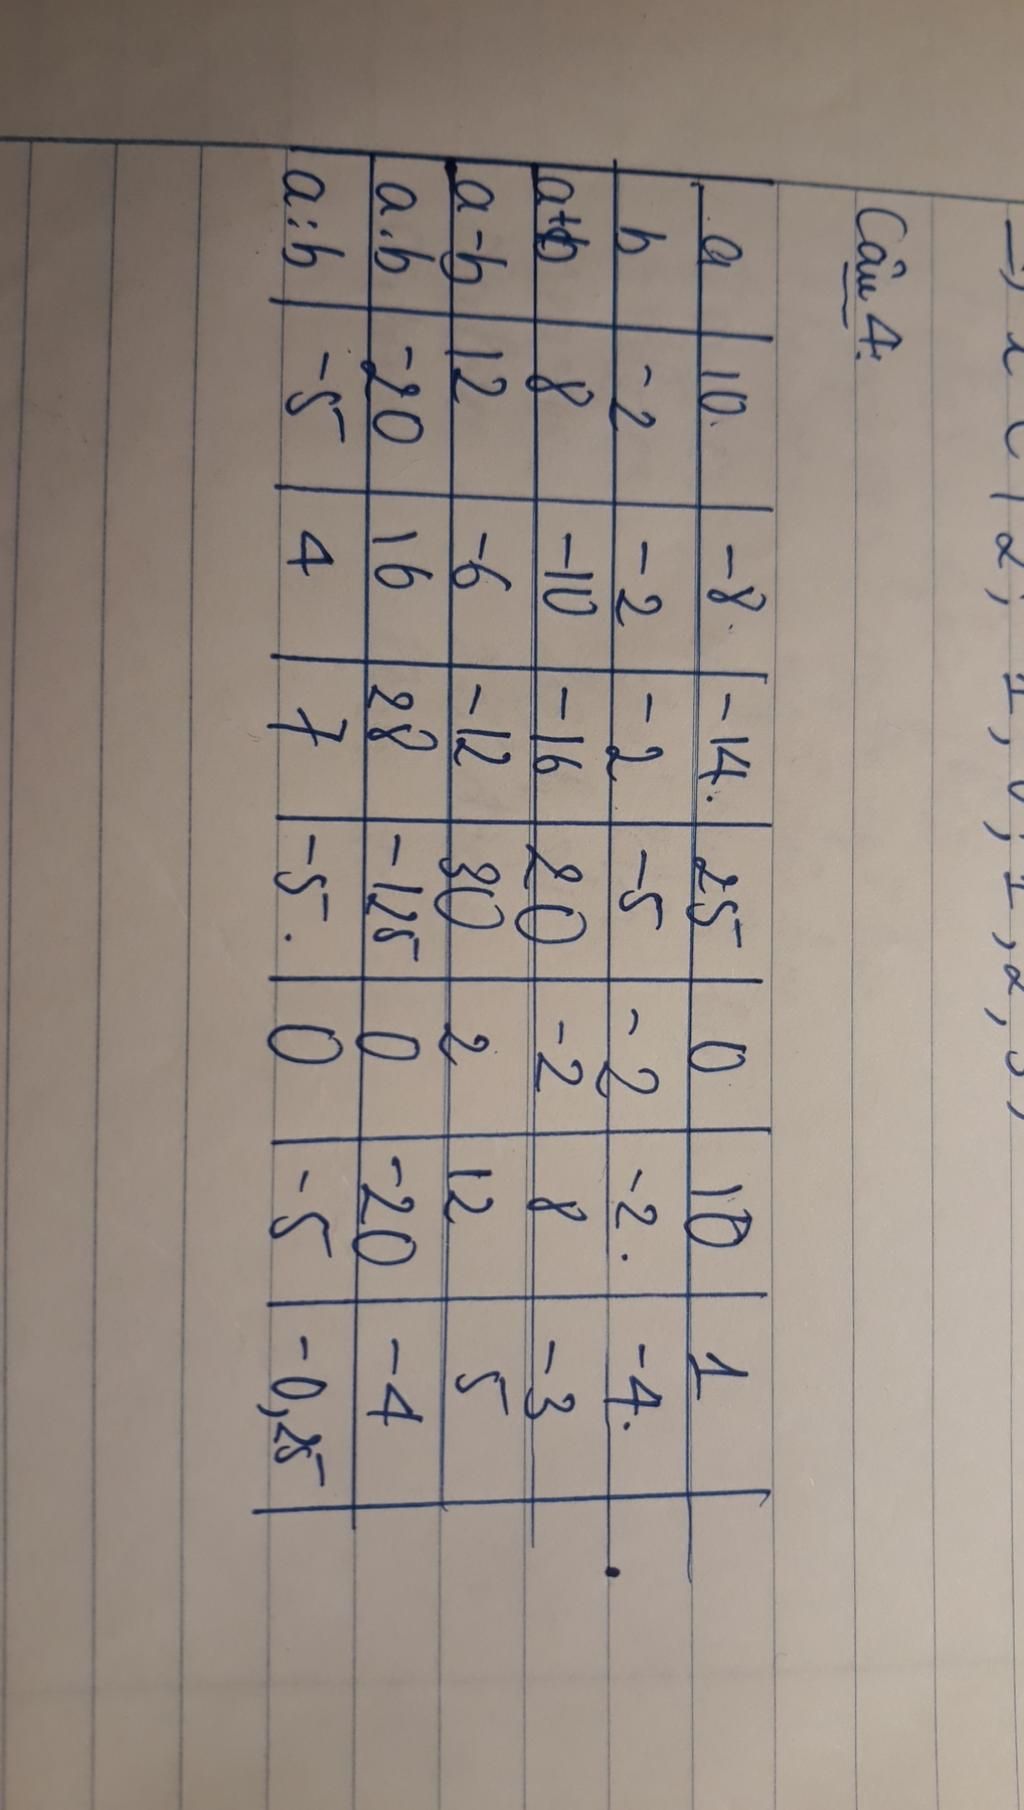 Câu 4:
a 10 -8 -14 25 0 10 1
b -2 -2 -2 -5 -2 -2 -4
a+b 8 -10 -16 20 -2 8 -3
a-b 12 -6 -12 30 2 12 5
a.b -20 16 28 -125 0 -20 -4
a:b -5 4 7 -5 0 -5 -0,25